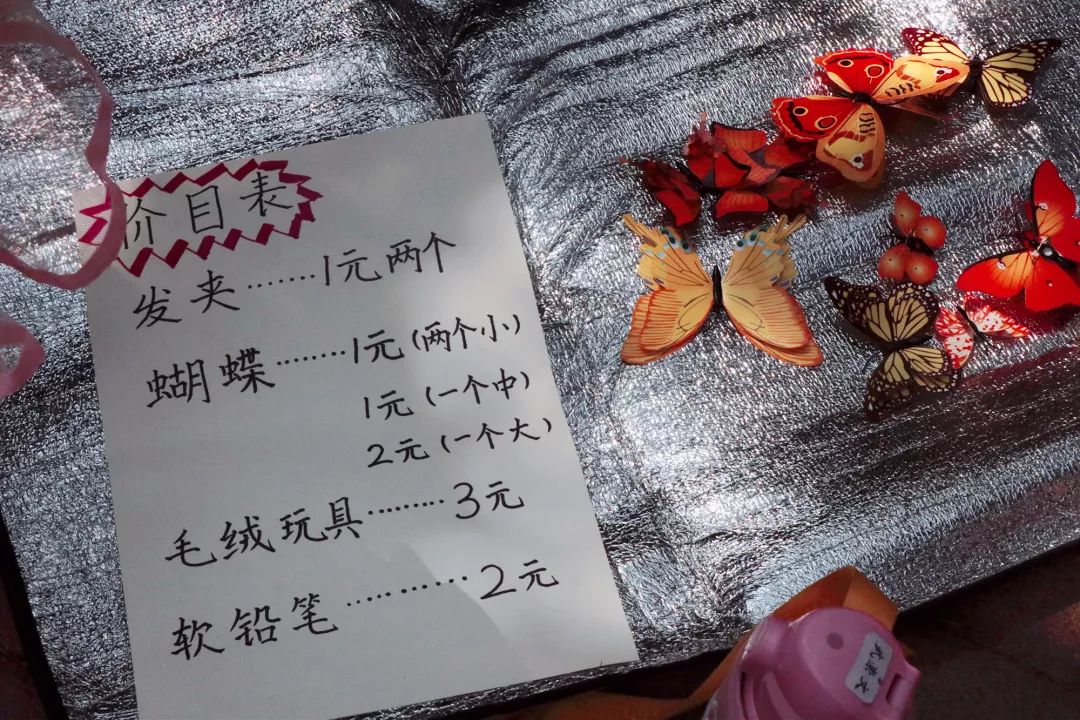 价目表
发夹………1元两个
蝴蝶………1元(两个小)
1元(一个中)
2元(一个大)
毛绒玩具………3元
软铅笔…………2元